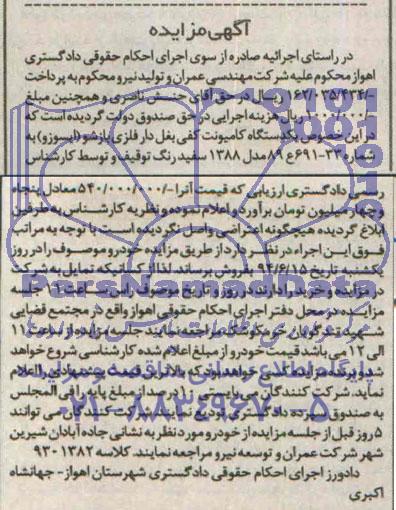 آگهی مزایده
در راستای اجرائیه صادره از سوی اجرای احکام حقوقی دادگستری
اهواز محکوم علیه شرکت مهندسی عمران و تولید نیرو محکوم به پرداخت
۱۶۷/۰۳۵/۴۳۴/- ریال در حق آقای ناصری و همچنین مبلغ
ریال هزینه اجرایی در حق صندوق دولت گردیده است که
در این خصوص یکدستگاه کامیونت کفی بغل دار فلزی بازشو (ایسوزو) به
شماره ۳۳-۶۹۱ع ۸۹ مدل ۱۳۸۸ سفید رنگ توقیف و توسط کارشناس
رسمی دادگستری ارزیابی که قیمت آنرا -/۵۴۰/۰۰۰/۰۰۰ معادل پنجاه
و چهار میلیون تومان برآورد و اعلام نموده و نظریه کارشناس به طرفین
ابلاغ گردیده هیچگونه اعتراضی واصل نگردیده است. با توجه به مراتب
فوق این اجراء در نظر دارد از طریق مزایده خودرو موصوف را در روز
یکشنبه تاریخ ۹۴/۶/۱۵ بفروش برساند. لذا از کسانیکه تمایل به شرکت
در مزایده و خرید را دارند در روز و تاریخ موصوف رأس ساعت ۱۱ جلسه
مزایده در محل دفتر اجرای احکام حقوقی اهواز واقع در مجتمع قضایی
شهید مراجعه نمایند. جلسه مزایده از ساعت ۱۱
الی ۱۲ می باشد قیمت خودرو از مبلغ اعلام شده کارشناسی شروع خواهد
شد و برنده مزایده کسی خواهد بود که بالاترین قیمت پیشنهادی را اعلام
نماید. شرکت کنندگان می بایستی درصد از مبلغ پایه را فی المجلس
به صندوق سپرده دادگستری تودیع نمایند. شرکت کنندگان می توانند
۵ روز قبل از جلسه مزایده از خودرو مورد نظر به نشانی جاده آبادان شیرین
شهر شرکت عمران و توسعه نیرو مراجعه نمایند. کلاسه ۹۳۰۱۳۸۲
دادورز اجرای احکام حقوقی دادگستری شهرستان اهواز- جهانشاه
اکبری
ParsNamadData
۰۲۱-۸۸۳۴۹۶۷۰-۵